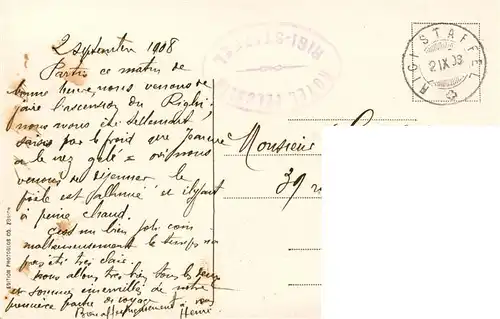 2 septembre 1908
Partis ce matin de
bonne heure, nous venons de
faire l'ascension du Righi.
nous avons été tellement
saisis par le froid que Jeanne
a le nez gelé = oui nous
venons de déjeuner le
poële est allumé et il fait
à peine chaud.
C'est un bien joli coin
malheureusement le temps n'a
pas été très clair.
Nous allons très bien tous les deux
et sommes émerveillés de notre
première partie de voyage
Bien affectueusement à vous
Henri
HOTEL
RIGI-STAFFEL
RIGI STAFFEL
2 IX 08
Monsieur
39
EDITION PHOTOGLOB CO. ZÜRICH